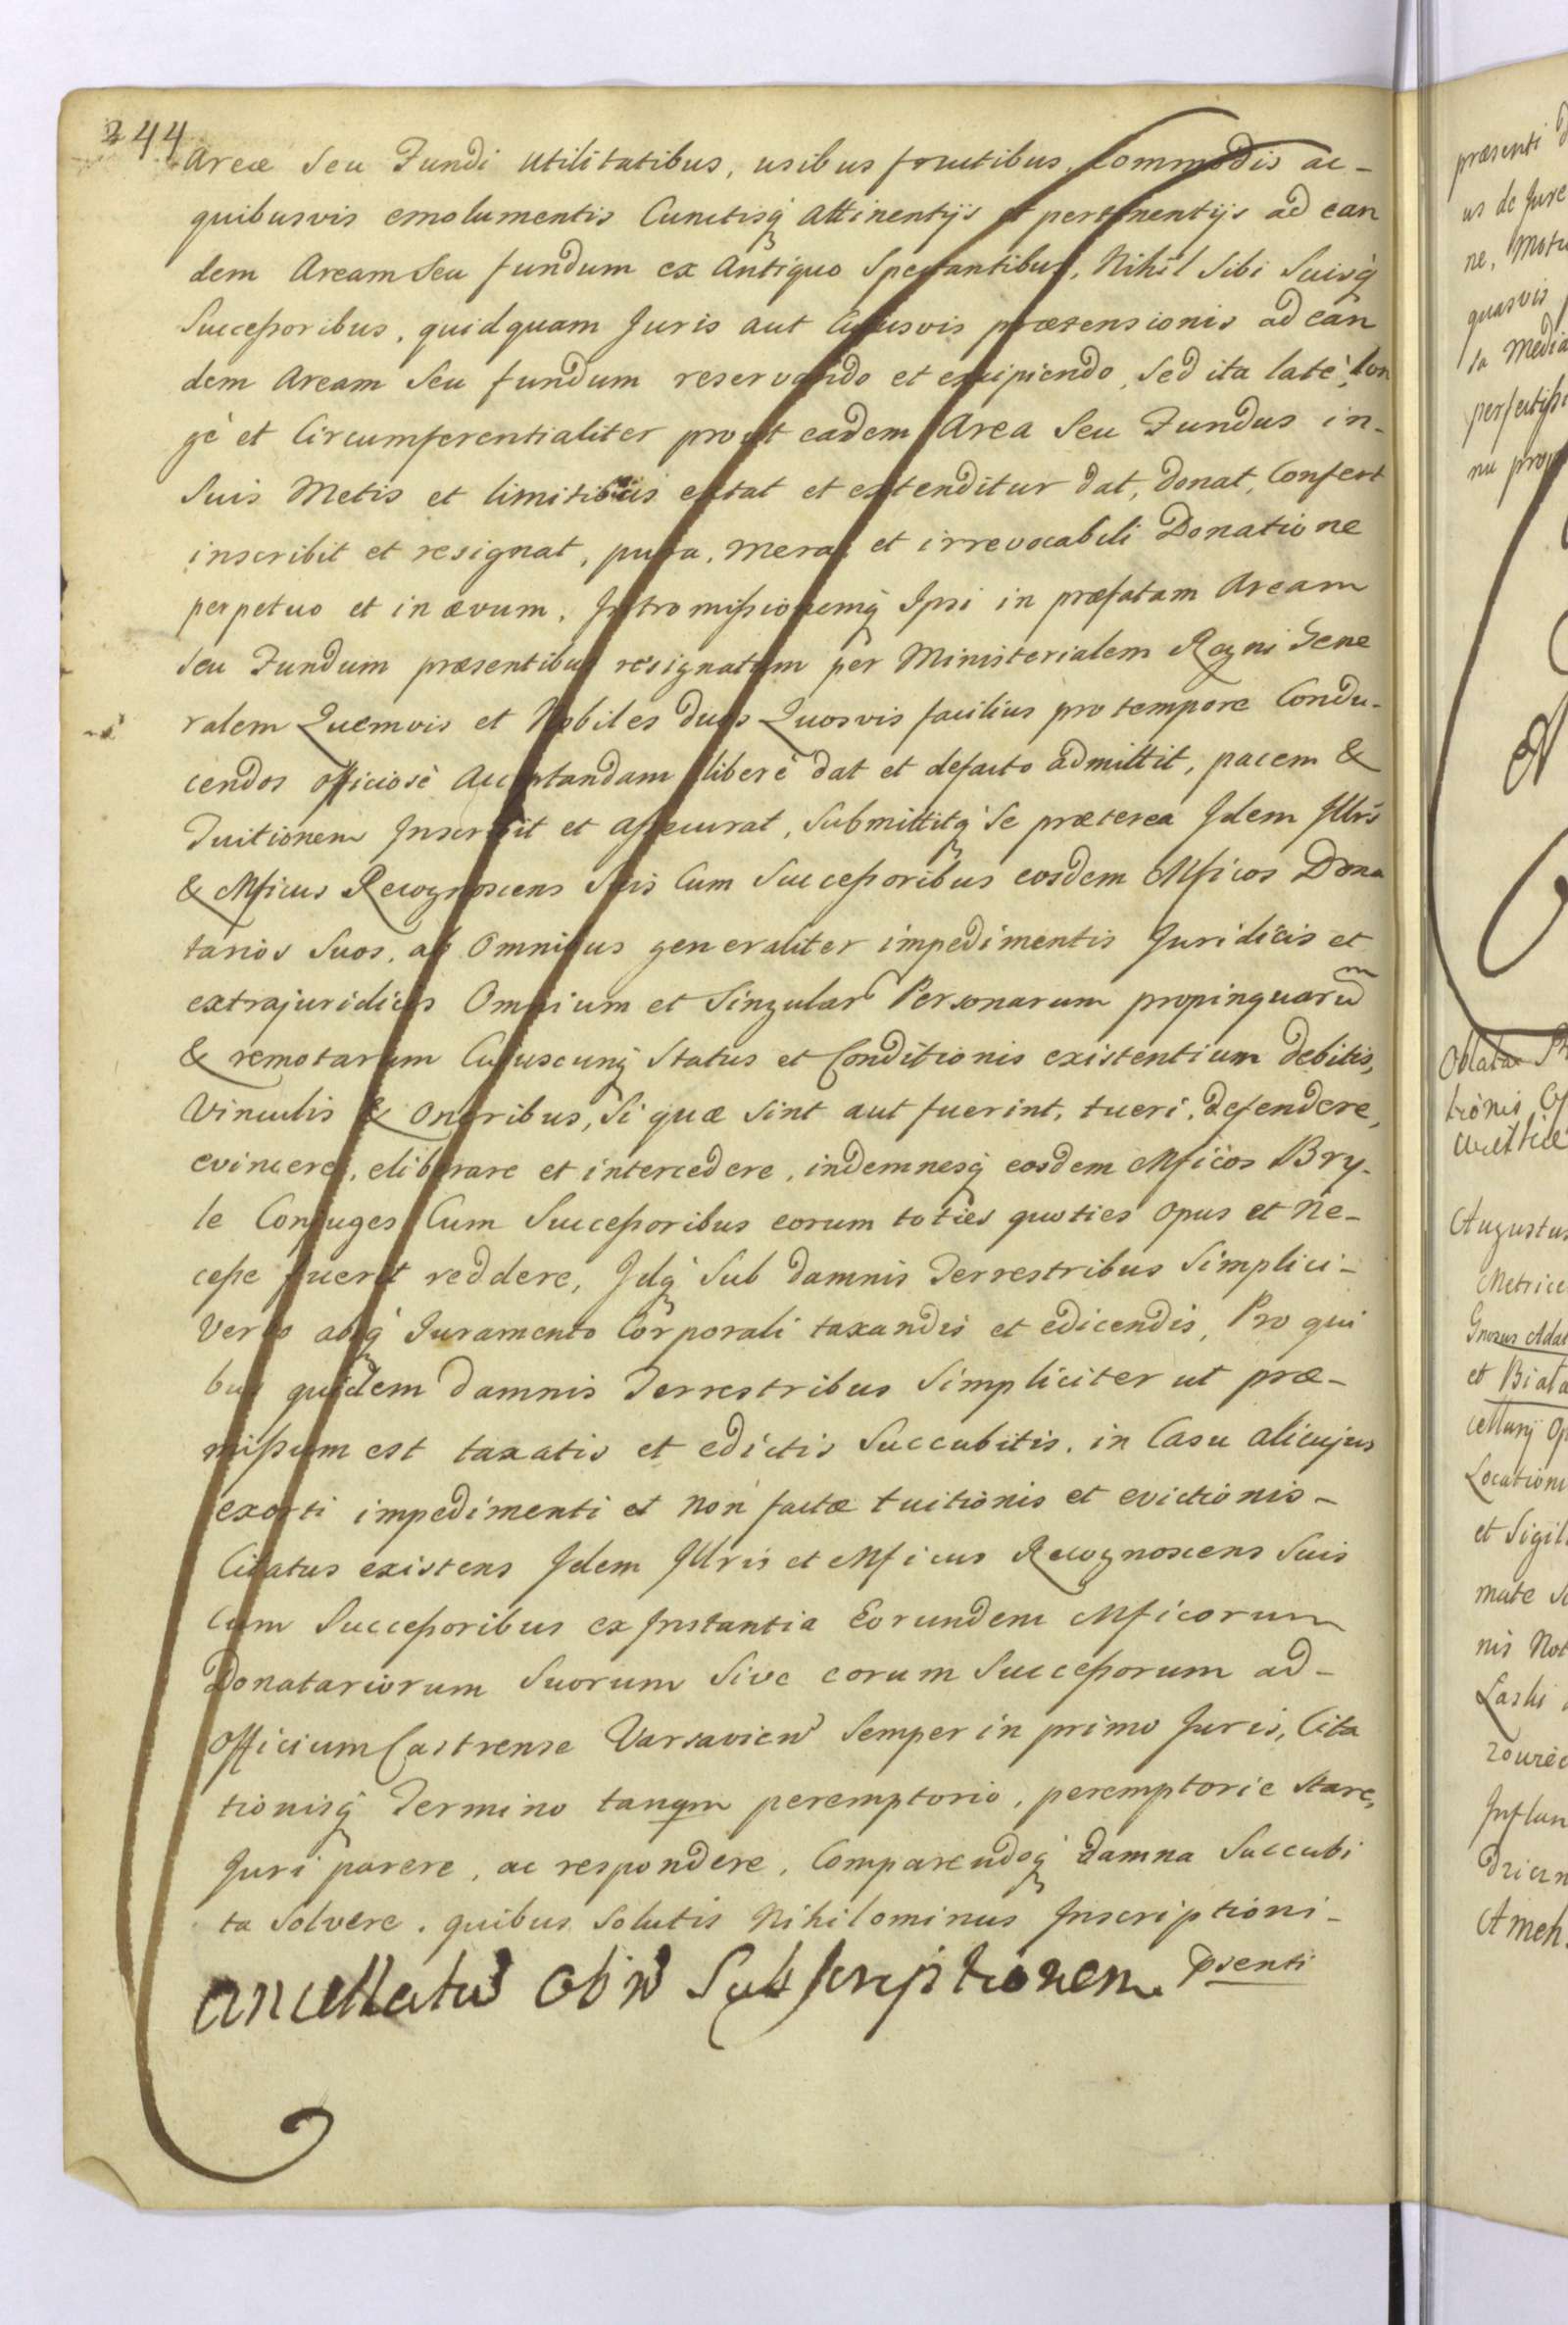 244
Areæ Seu Fundi utilitatibus, usibus fructibus, Commodis ac-
quibusvis emolumentis Cunctisq́ attinentijs et pertinentijs ad ean
dem Aream Seu fundum ex Antiquo Spectantibus, Nihil Sibi Suisq́
Succeßoribus, quidquam Juris aut Cujusvis prætensionis ad ean
dem Aream Seu fundum reservando et excipiendo, Sed ita latè, lon
gè et Circumferentialiter prout eadem Area Seu Fundus in-
Suis Metis et limitibus extat et extenditur dat, donat, Confert
inscribit et resignat, pura, mera, et irrevocabili Donatione
perpetuo et in ævum, Intromißionemq́ Ipsi in præfatam Aream
Seu Fundum præsentibus resignatam per Ministerialem Regni Gene
ralem Quemvis et Nobiles duos Quosvis facilius pro tempore Condu-
cendos officiosè Acceptandam liberè dat et defacto admittit, pacem &
Tuitionem Inscribit et aßecurat, Submittitq́ Se præterea Idem Illris
& Mficus Recognoscens Suis Cum Succeßoribus eosdem Mficos Dona
tarios Suos, ab Omnibus generaliter impedimentis Juridicis et
extrajuridicis Omnium et Singular Personarum propinquarum
& remotarum Cujuscunq́ Status et Conditionis existentium debitis,
Vinculis & Oneribus, Si quæ Sint aut fuerint, tueri, defendere,
evincere, eliberare et intercedere, indemnesq́ eosdem Mficos Bry-
le Conjuges Cum Succeßoribus eorum toties quoties opus et Ne-
ceße fuerit reddere, Idq́ Sub damnis Terrestribus Simplici-
Verbo absq́ Juramento Corporali taxandis et edicendis, Pro qui
bus quidem damnis Terrestribus Simpliciter ut præ-
mißum est taxatis et edictis Succubitis, in Casu alicujus
exorti impedimenti et non factæ tuitionis et evictionis-
Citatus existens Idem Illris et Mficus Recognoscens Suis
Cum Succeßoribus ex Instantia Eorundem Mficorum
Donatariorum Suorum Sive eorum Succeßorum ad-
Officium Castrense Varsavien Semper in primo Juris, Cita
tionisq́ Termino tanqm peremptorio, peremptorie Stare,
Juri parere, ac respondere, Comparendoq́ damna Succubi
ta Solvere, quibus Solutis Nihilominus Inscriptioni-
psenti
Cancellatū ob ñ Subscriptionem
præsenti
us de Jure
ne, Motu
quasvis
ta Media
perfectißi
nu prop
Oblata
tionis
Augustus
Metrice
Gnosus Adal
et Biała
cellarij Op
Locationi
et Sigil
mate
nis Not
Laski
Inflan
Ameh